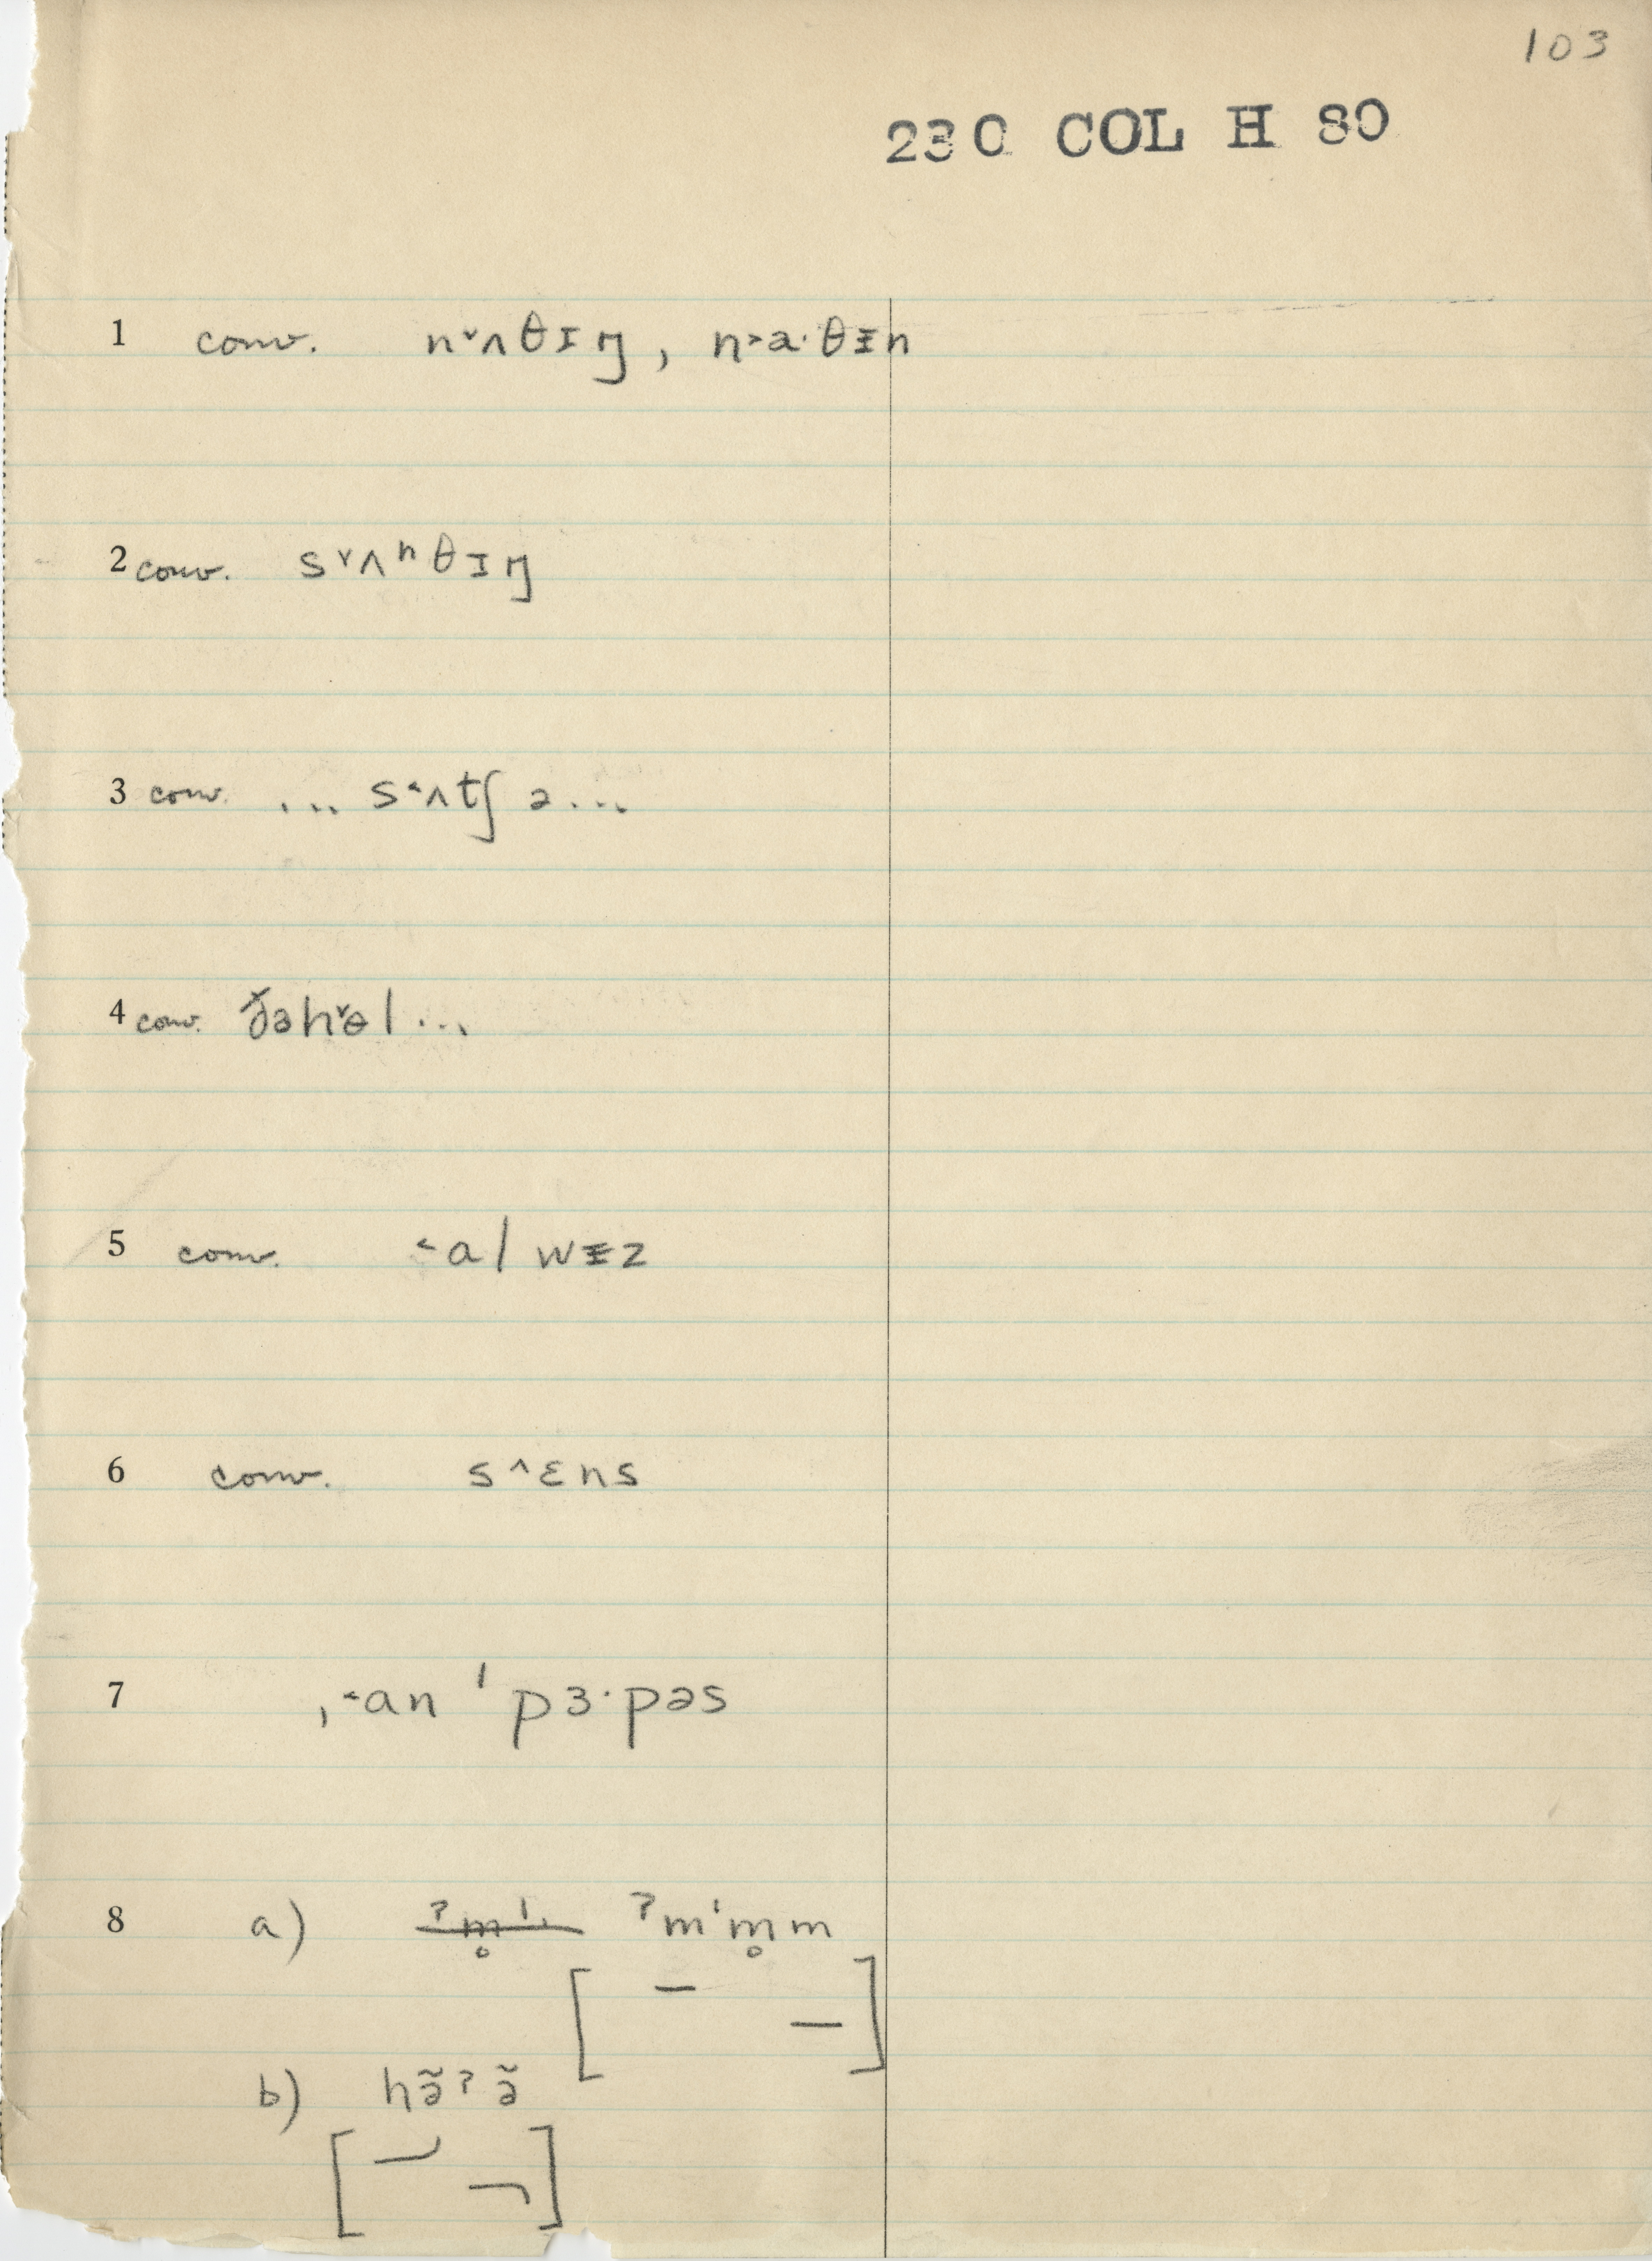 103
230 COL H 80
1 conv. n˅ʌθɪŋ, n˃a·θɪn
2 conv. s˅ʌⁿθɪŋ
3 conv. ... s˂ʌtʃ ə...
4 conv.
5 conv. ˂a l wɪz
6 conv. s˄ɛns
7 ˌ˂an ˈpɜ·pəs
8 a) ˀmˈm̥m
[ – – ]
b) hə̃ˀə̃